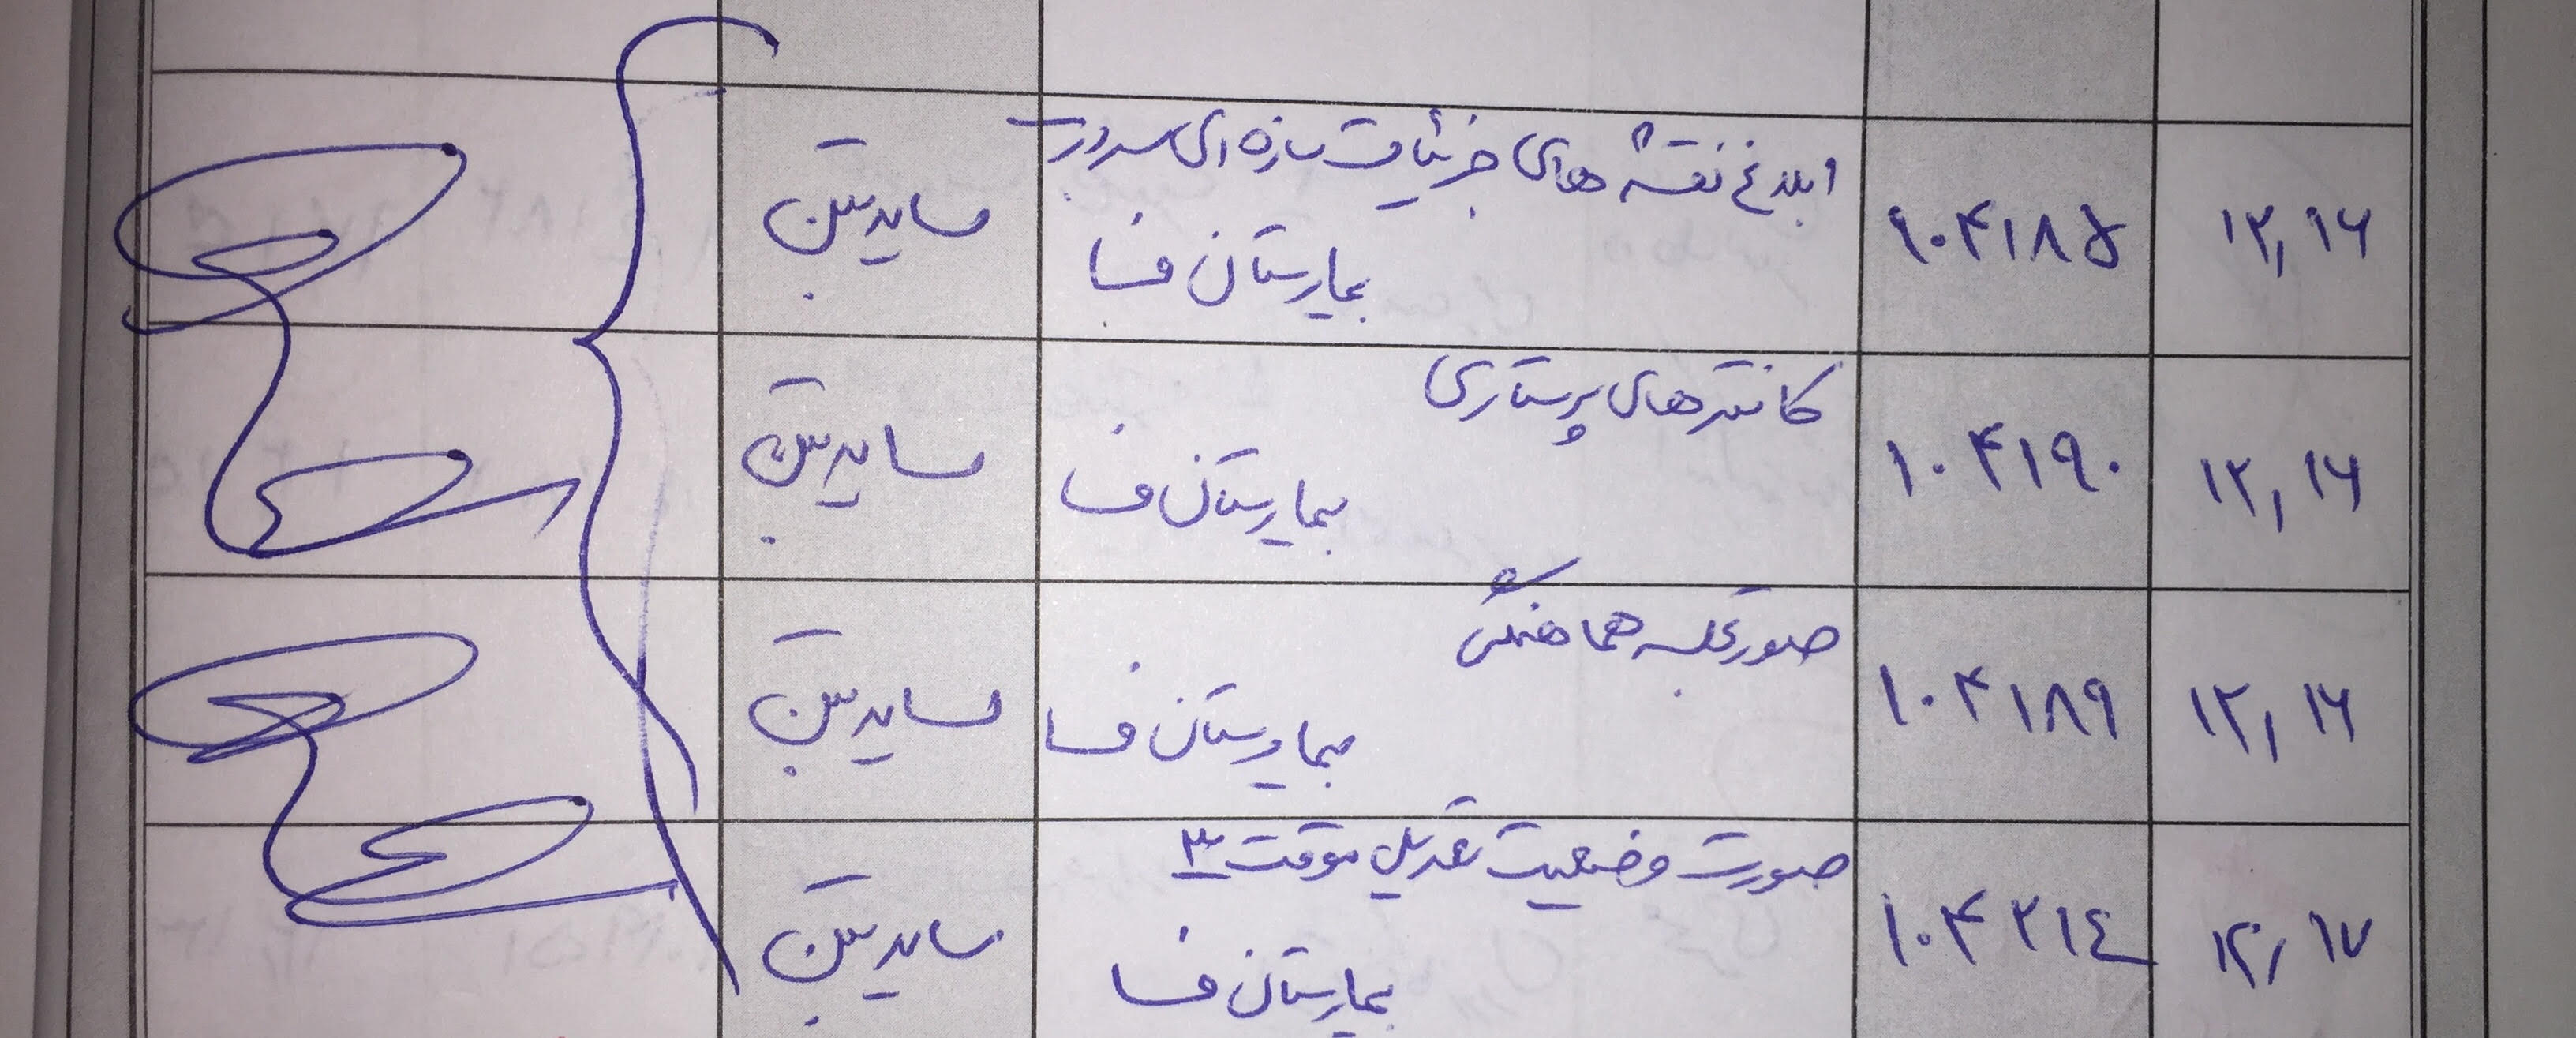 ۱۲,۱۶
۱۰۴۱۸۵
ابلاغ نقشه های جزئیات سازه ای سردرب
بیمارستان فسا
۱۲,۱۶
۱۰۴۱۹۰
کانترهای پرستاری
بیمارستان فسا
۱۲,۱۶
۱۰۴۱۸۹
صورتجلسه هماهنگی
بیمارستان فسا
۱۲,۱۷
۱۰۴۲۱٤
صورت وضعیت تعدیل موقت ۳
بیمارستان فسا